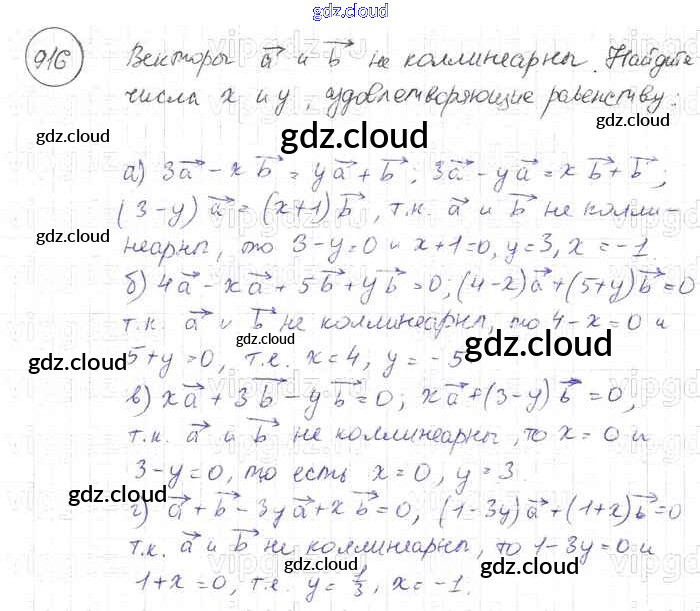 gdz.cloud
916 Векторы a⃗ и b⃗ не коллинеарны. Найдите
числа x и y, удовлетворяющие равенству:
gdz.cloud gdz.cloud gdz.cloud
а) 3a⃗ - x b⃗ = y a⃗ + b⃗; 3a⃗ - y a⃗ = x b⃗ + b⃗;
(3-y) a⃗ = (x+1) b⃗, т.к. a⃗ и b⃗ не колли-
gdz.cloud gdz.cloud
неарны, то 3-y=0 и x+1=0, y=3, x = -1.
б) 4a⃗ - xa⃗ + 5b⃗ + yb⃗ = 0, (4-x)a⃗ + (5+y)b⃗ = 0
т.к. a⃗ и b⃗ не коллинеарны, то 4-x=0 и
gdz.cloud gdz.cloud gdz.cloud
5+y=0, т.е. x=4, y = -5
в) xa⃗ + 3b⃗ - yb⃗ = 0; xa⃗ + (3-y)b⃗ = 0,
т.к. a⃗ и b⃗ не коллинеарны, то x = 0 и
3-y=0, то есть x=0, y=3.
gdz.cloud gdz.cloud
г) a⃗ + b⃗ - 3ya⃗ + xb⃗ = 0, (1-3y)a⃗ + (1+x)b⃗ = 0
т.к. a⃗ и b⃗ не коллинеарны, то 1-3y=0 и
gdz.cloud gdz.cloud
1+x=0, т.е. y = 1/3, x = -1.